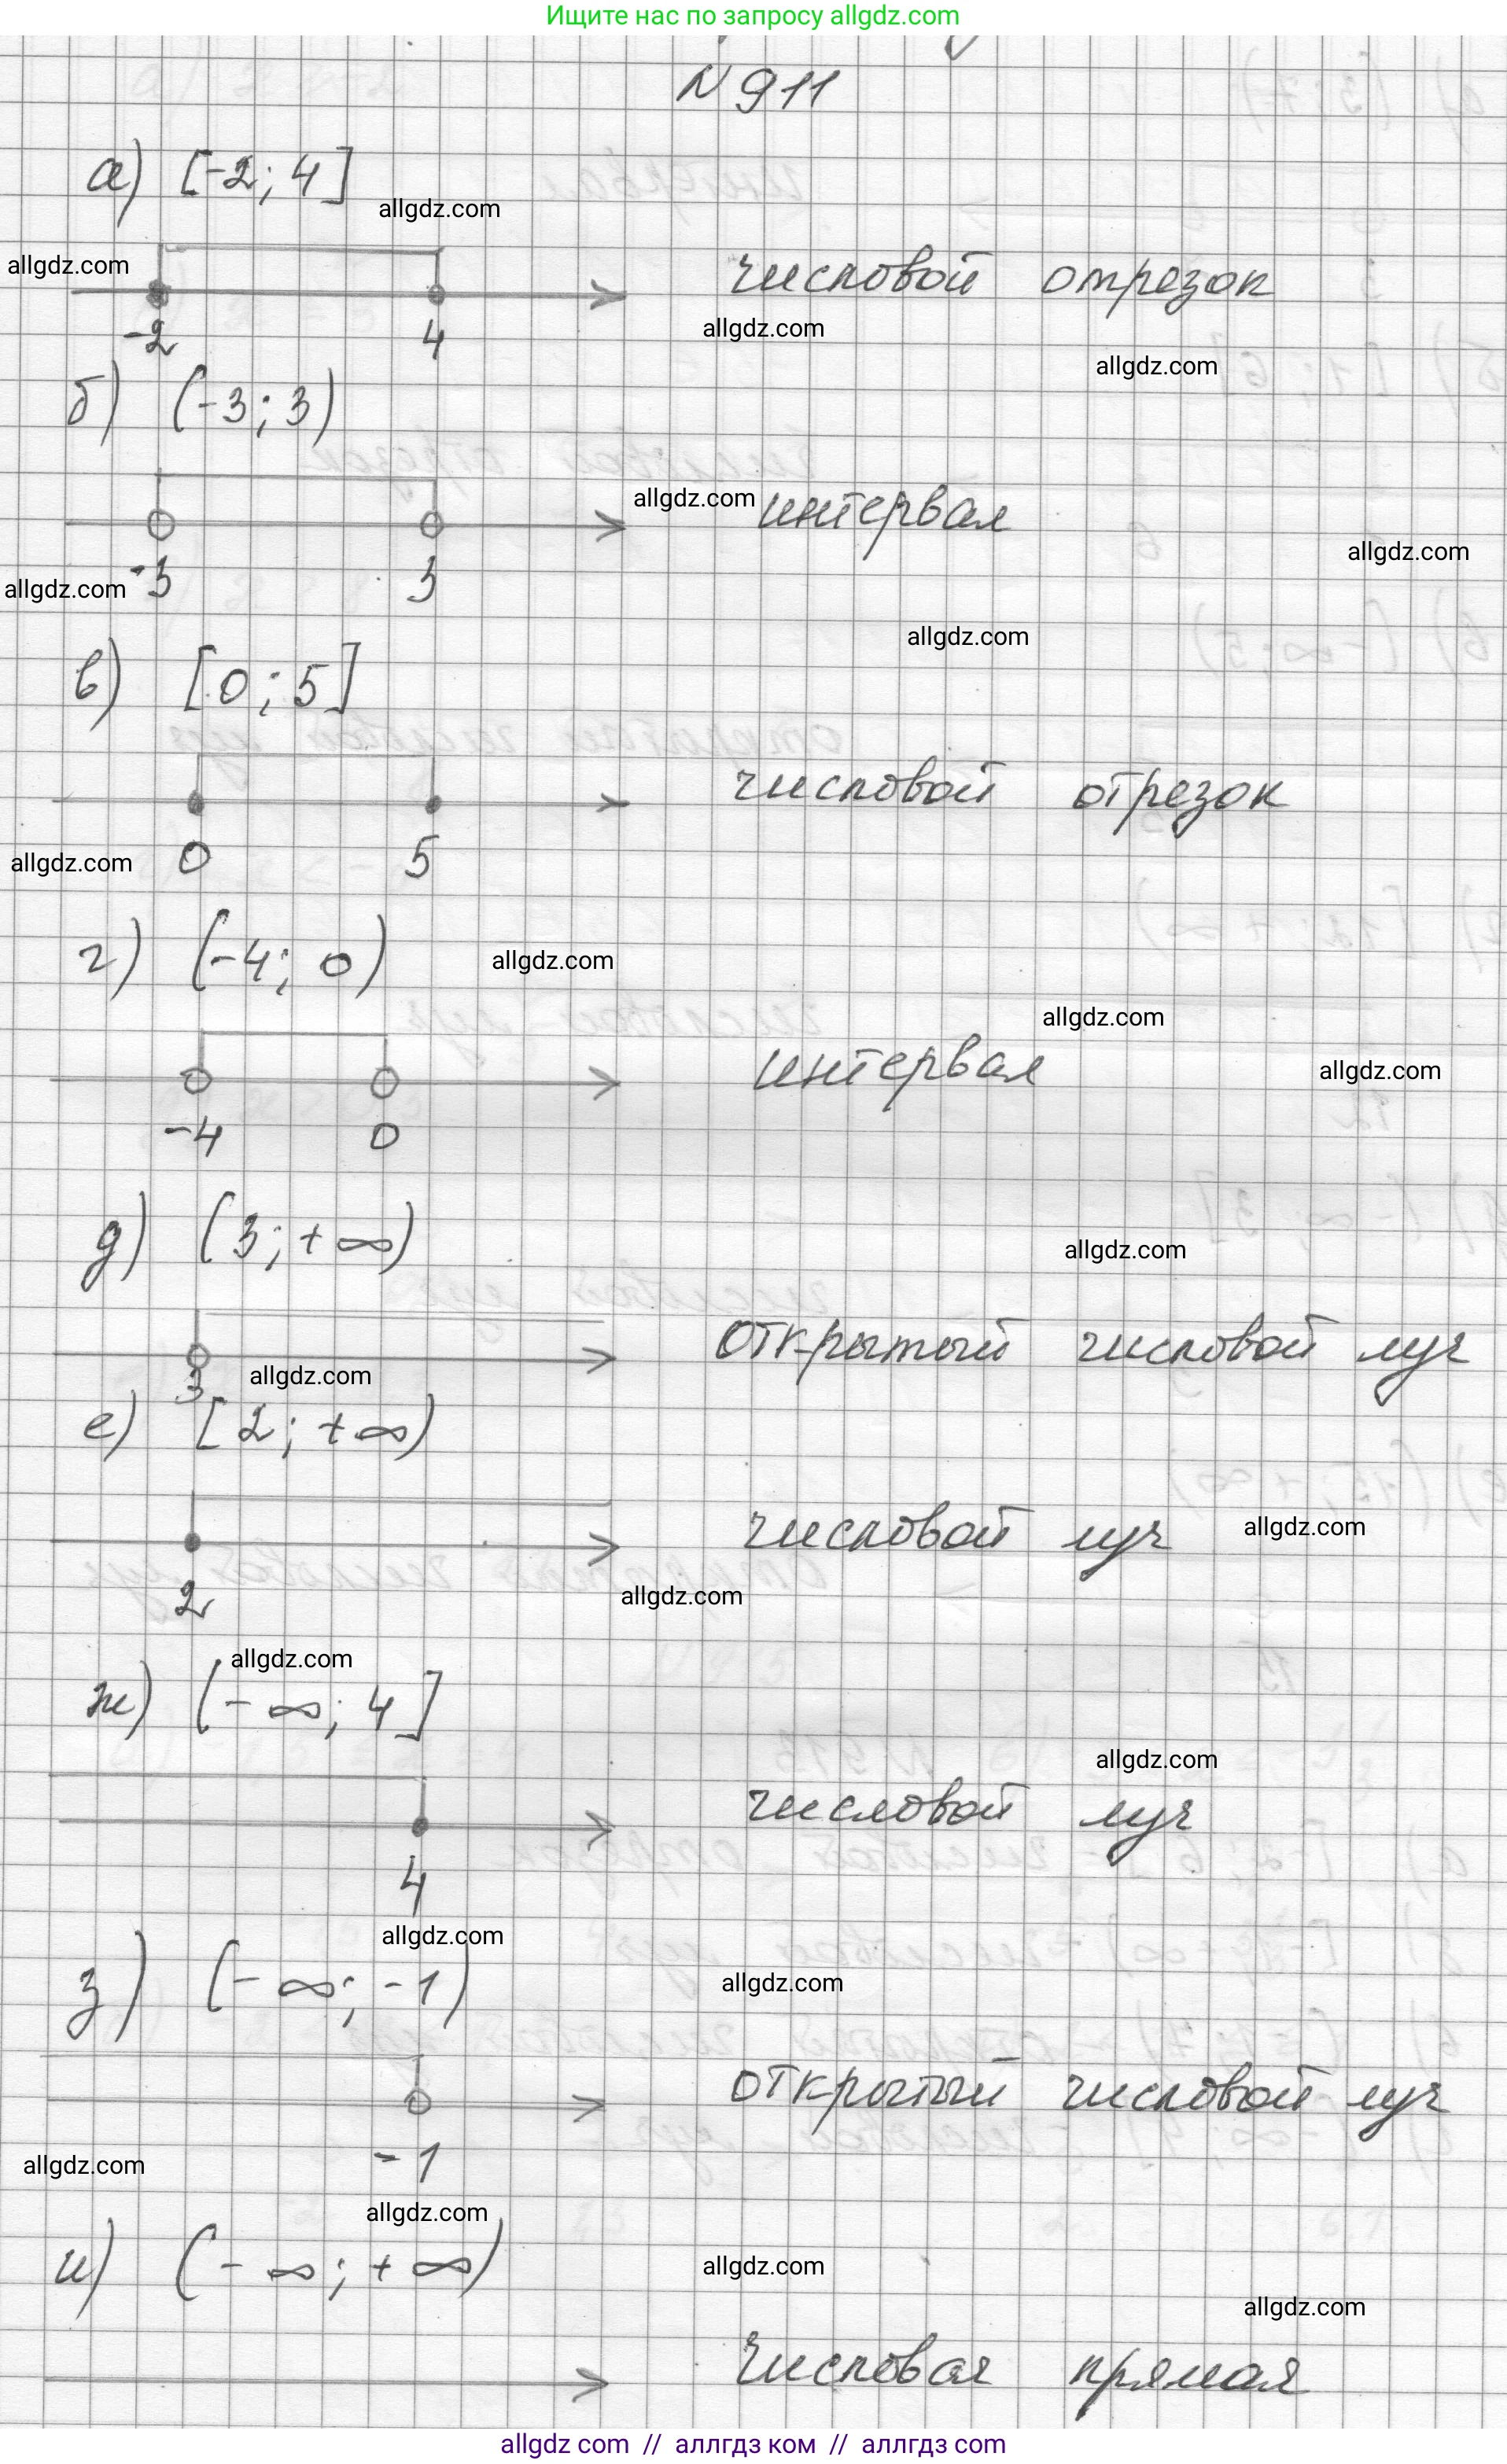 Ищите нас по запросу allgdz.com
N 911
а) [-2; 4]
allgdz.com
allgdz.com
числовой отрезок
-2 4
allgdz.com
allgdz.com
б) (-3; 3)
allgdz.com
интервал
allgdz.com
-3 3
allgdz.com
allgdz.com
в) [0; 5]
числовой отрезок
0 5
allgdz.com
г) (-4; 0)
allgdz.com
allgdz.com
интервал
allgdz.com
-4 0
д) (3; +∞)
allgdz.com
открытый числовой луч
3
allgdz.com
е) [2; +∞)
числовой луч
allgdz.com
2
allgdz.com
allgdz.com
ж) (-∞; 4]
allgdz.com
числовой луч
4
allgdz.com
з) (-∞; -1)
allgdz.com
открытый числовой луч
-1
allgdz.com
allgdz.com
и) (-∞; +∞)
allgdz.com
allgdz.com
числовая прямая
allgdz com // аллгдз ком // аллгдз com